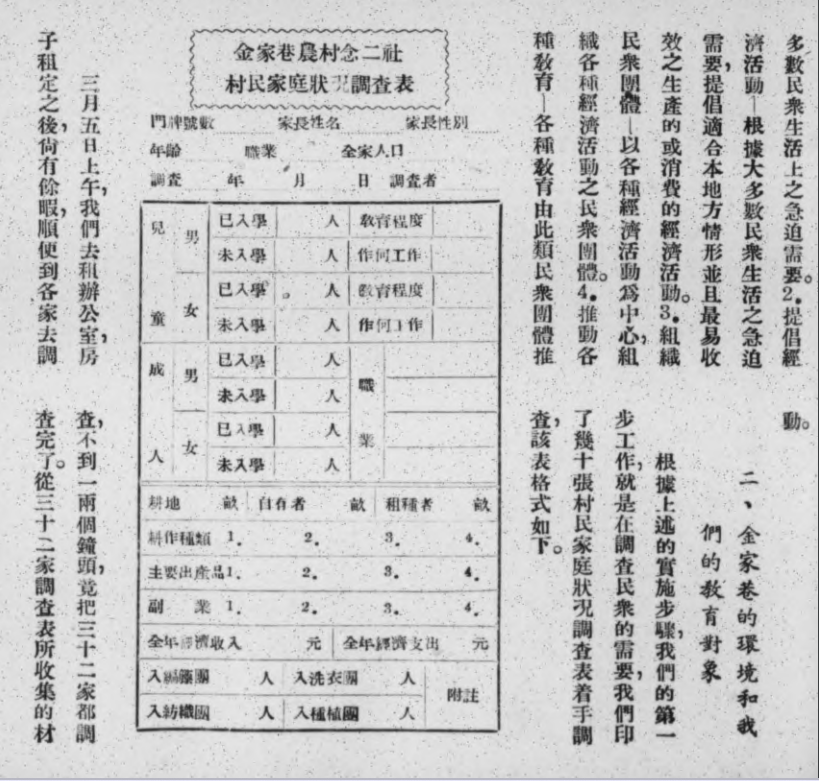 多數民衆生活上之急迫需要。2.提倡經
濟活動—根據大多數民衆生活之急迫
需要,提倡適合本地方情形並且最易收
效之生產的或消費的經濟活動。3.組織
民衆團體—以各種經濟活動爲中心,組
織各種經濟活動之民衆團體。4.推動各
種敎育—各種敎育由此類民衆團體推
動。
二、金家巷的環境和我
們的敎育對象
根據上述的實施步驟,我們的第一
步工作,就是在調查民衆的需要,我們印
了幾十張村民家庭狀況調查表着手調
查,該表格式如下。
金家巷農村念二社
村民家庭狀況調查表
門牌號數 家長姓名 家長性別
年齡 職業 全家人口
調查 年 月 日 調查者
兒童 男 已入學 人 敎育程度
未入學 人 作何工作
女 已入學 人 敎育程度
未入學 人 作何工作
成人 男 已入學 人 職業
未入學 人
女 已入學 人
未入學 人
耕地 畝 自有者 畝 租種者 畝
耕作種類 1. 2. 3. 4.
主要出產品 1. 2. 3. 4.
副業 1. 2. 3. 4.
全年經濟收入 元 全年經濟支出 元
入編籐團 人 入洗衣團 人 附註
入紡織團 人 入種植團 人
三月五日上午,我們去租辦公室,房
子租定之後,尙有餘暇,順便到各家去調
查,不到一兩個鐘頭,竟把三十二家都調
查完了。從三十二家調查表所收集的材